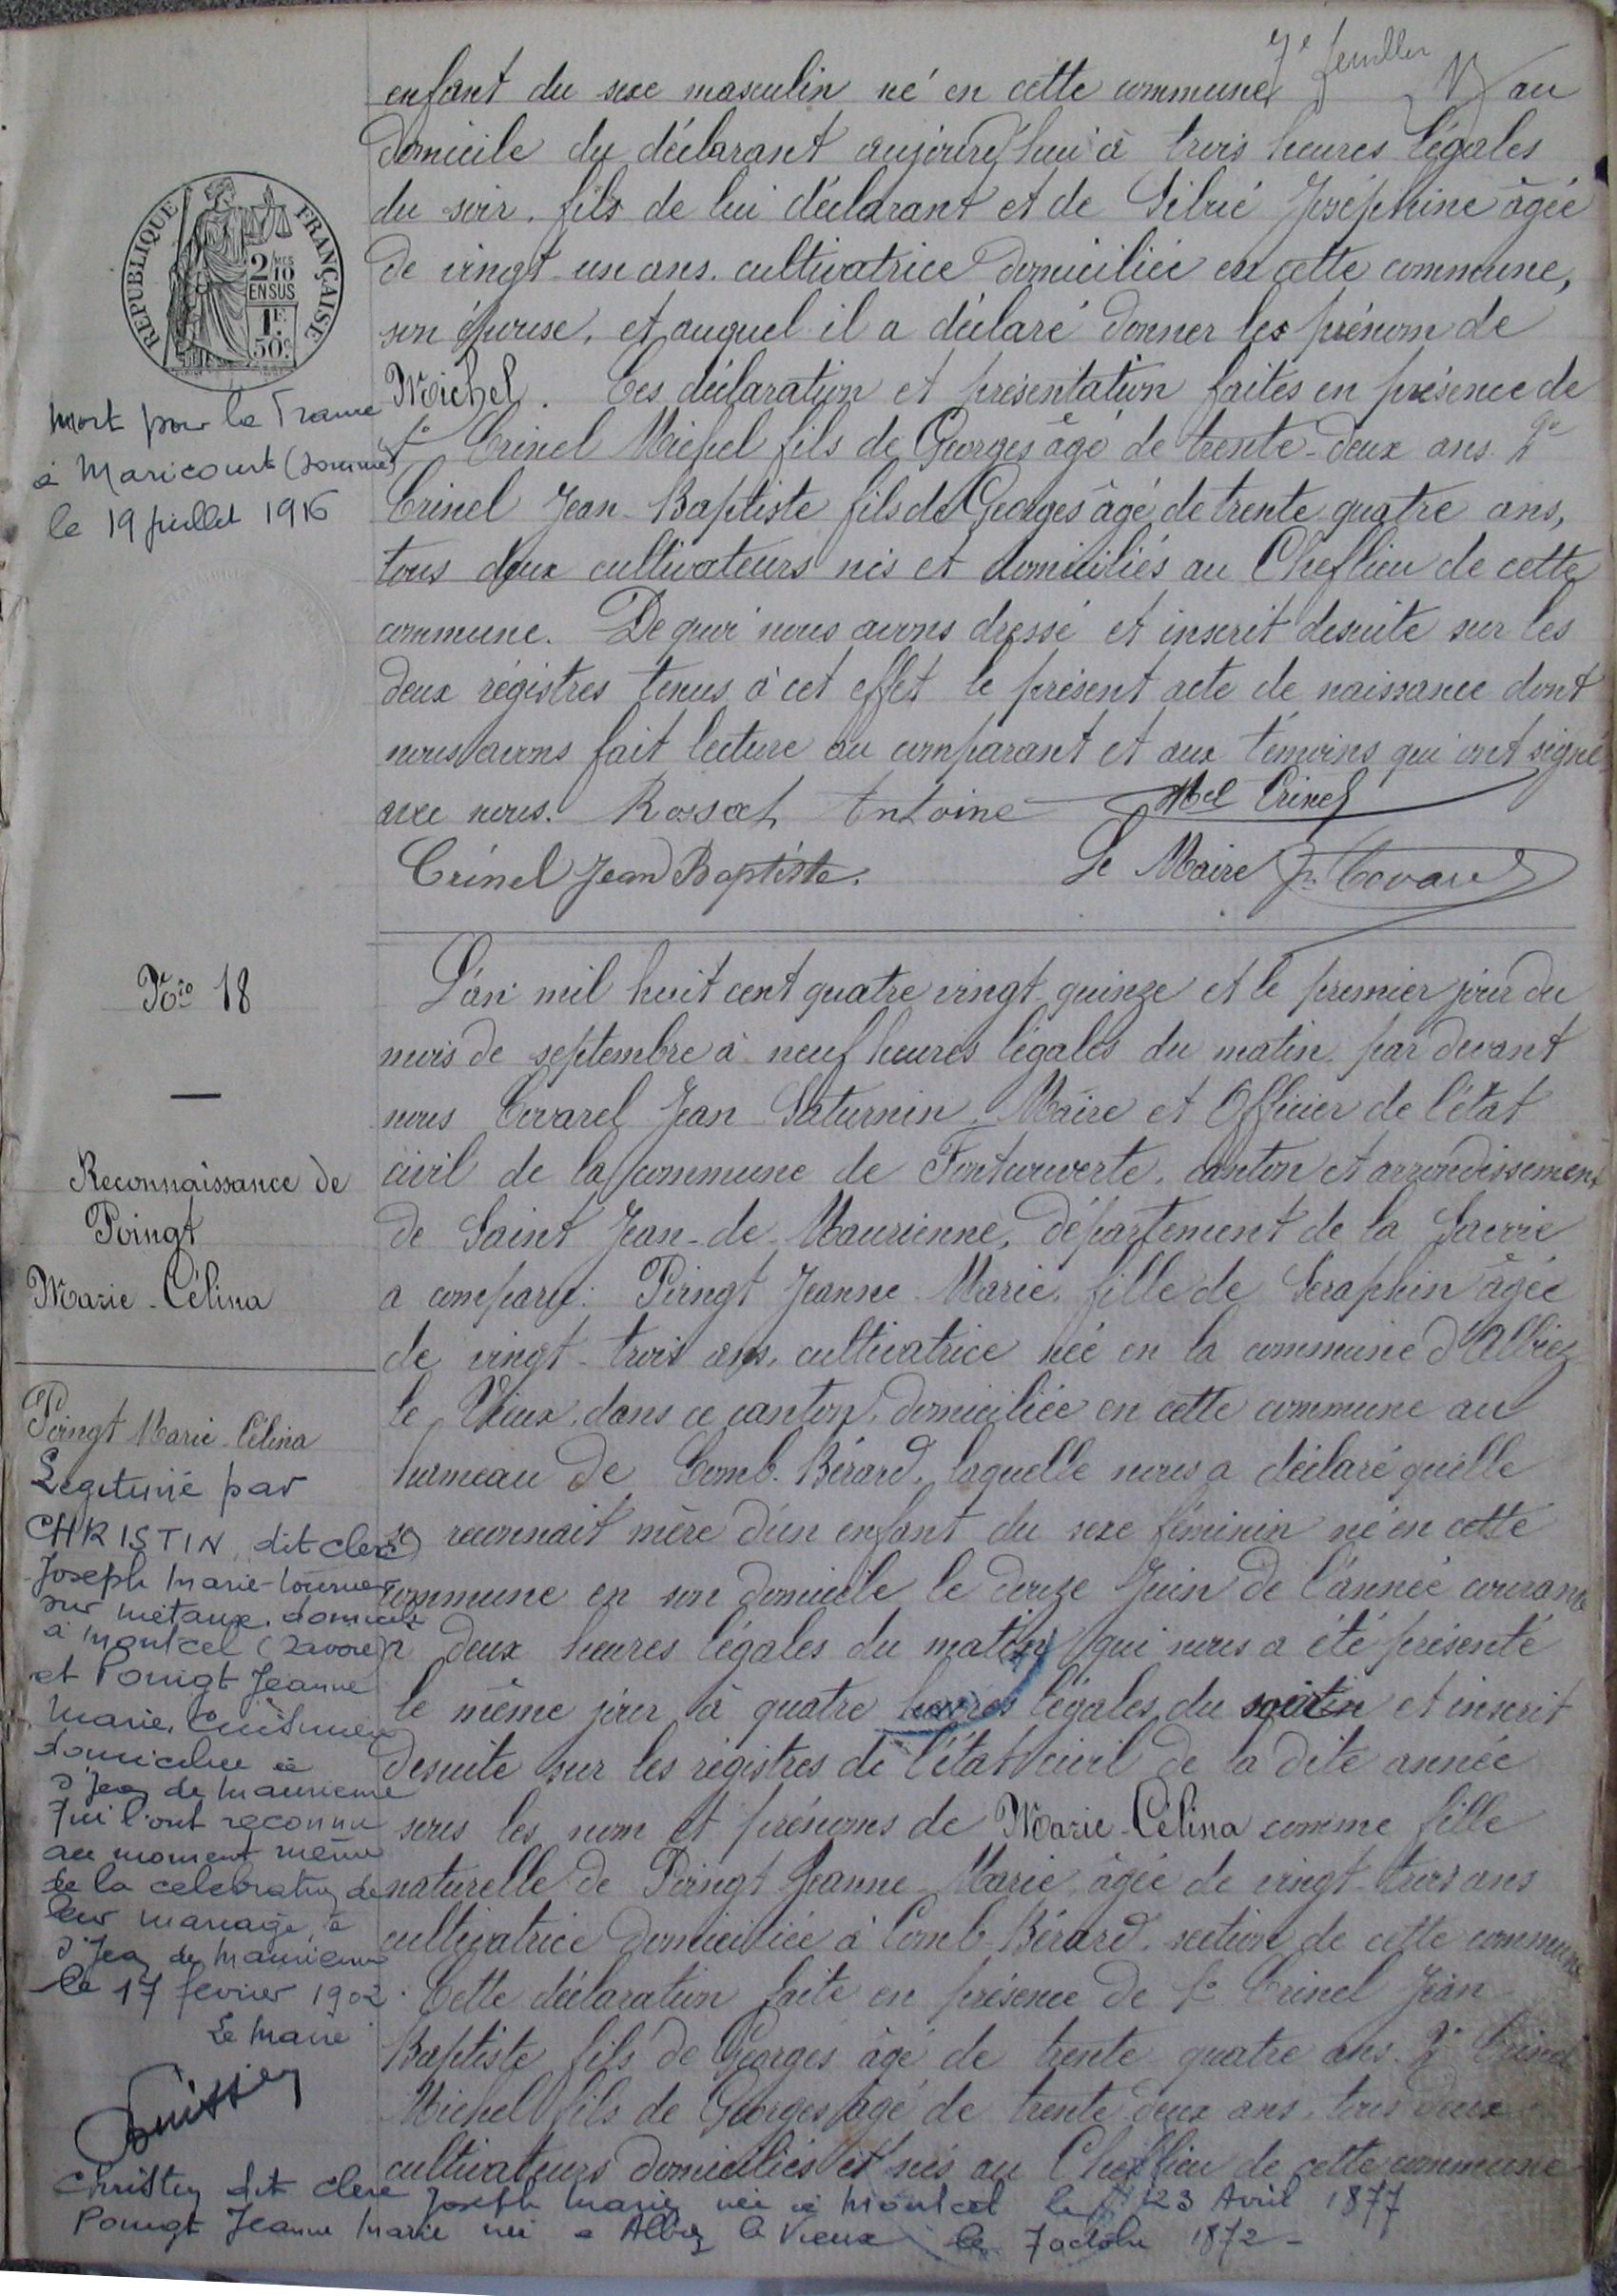 7e feuillet
enfant du sexe masculin né en cette commune au
domicile du déclarant aujourd'hui à trois heures légales
du soir. fils de lui déclarant et de Joséphine âgée
de vingt-un ans. cultivatrice domiciliée en cette commune,
son épouse, et auquel il a déclaré donner les prénom de
Michel. Ces déclaration et présentation faites en présence de
1o Crinel Michel fils de Georges âgé de trente-deux ans 2o
Crinel Jean-Baptiste fils de Georges âgé de trente quatre ans,
tous deux cultivateurs nés et domiciliés au Cheflieu de cette
commune. De quoi nous avons dressé et inscrit desuite sur les
deux régistres tenus à cet effet le présent acte de naissance dont
nous avons fait lecture au comparant et aux témoins qui ont signé
avec nous. Rossat Antoine Mel Crinel
Crinel Jean Baptiste. Le Maire J. Covarel
REPUBLIQUE FRANÇAISE
2/10 MES
EN SUS
1F.
50c.
Mort pour la France
à Maricourt (Somme)
le 19 juillet 1916
No 18
Reconnaissance de
Poingt
Marie-Célina
L'an mil huit cent quatre vingt-quinze et le premier jour du
mois de septembre à neuf heures légales du matin. par devant
nous Covarel Jean Saturnin, Maire et Officier de l'état
civil de la commune de Fontcouverte, canton et arrondissement
de Saint Jean-de-Maurienne, département de la Savoie
a comparu: Poingt Jeanne-Marie, fille de Séraphin âgée
de vingt-trois ans, cultivatrice née en la commune d'Albiez
le Vieux, dans ce canton, domiciliée en cette commune au
hameau de Comb-Bérard, laquelle nous a déclaré qu'elle
se reconnait mère d'un enfant du sexe féminin né en cette
commune en son domicile le douze Juin de l'année courante
à deux heures légales du matin qui nous a été présenté
le même jour à quatre heures légales du et inscrit
desuite sur les régistres de l'état civil de la dite année
sous les nom et prénoms de Marie-Célina comme fille
naturelle de Poingt Jeanne Marie, âgée de vingt-trois ans
cultivatrice domiciliée à Comb-Bérard, section de cette commune
Cette déclaration faite en présence de 1o Crinel Jean
Baptiste fils de Georges âgé de trente quatre ans. 2o Crinel
Michel fils de Georges âgé de trente deux ans, tous deux
cultivateurs domiciliés et nés au Cheflieu de cette commune
Poingt Marie-Célina
Legitimé par
CHRISTIN, dit clerc
Joseph Marie-tourneur
sur métaux, domicilié
à Montcel (Savoie)
et Poingt Jeanne
Marie, Cuisinière
domiciliée à
St Jean de Maurienne
qui l'ont reconnu
au moment même
de la celebration de
leur mariage, à
St Jean de Maurienne
le 17 fevrier 1902.
Le Maire
Christin dit clerc Joseph Marie né à Montcel le 23 Avril 1877
Poingt Jeanne Marie née à Albiez le Vieux le 7 octobre 1872-